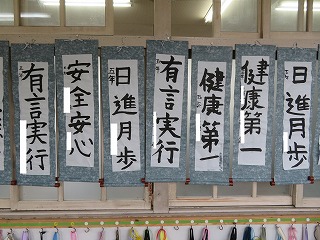 有言実行
安全安心
日進月歩
有言実行
健康第一
健康第一
日進月歩